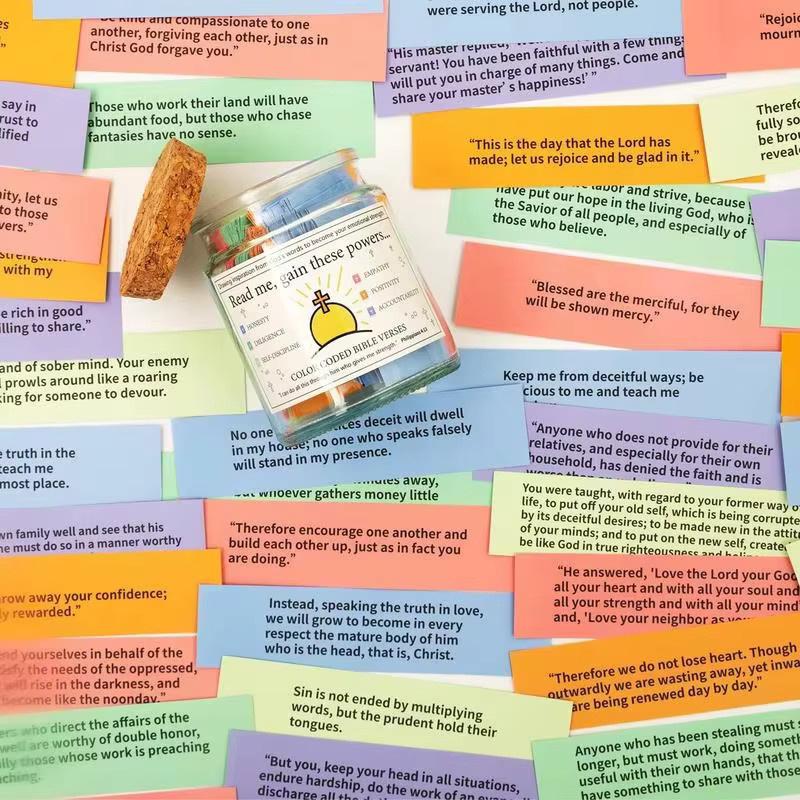 Be kind and compassionate to one
another, forgiving each other, just as in
Christ God forgave you.”
were serving the Lord, not people.
“His master replied,
servant! You have been faithful with a few things
will put you in charge of many things. Come and
share your master's happiness!’”
“Rejoi
mourn
say in
rust to
lified
Those who work their land will have
abundant food, but those who chase
fantasies have no sense.
“This is the day that the Lord has
made; let us rejoice and be glad in it.”
Therefo
fully so
be bro
reveale
nity, let us
to those
vers.”
strengthen
with my
labor and strive, because
have put our hope in the living God, who is
the Savior of all people, and especially of
those who believe.
Drawing inspiration from God's words to become your emotional strength
Read me, gain these powers...
HONESTY
DILIGENCE
SELF-DISCIPLINE
EMPATHY
POSITIVITY
ACCOUNTABILITY
COLOR-CODED BIBLE VERSES
"I can do all this through him who gives me strength." Philippians 4:13
“Blessed are the merciful, for they
will be shown mercy.”
be rich in good
illing to share.”
and of sober mind. Your enemy
prowls around like a roaring
king for someone to devour.
Keep me from deceitful ways; be
cious to me and teach me
No one who practices deceit will dwell
in my house; no one who speaks falsely
will stand in my presence.
“Anyone who does not provide for their
relatives, and especially for their own
household, has denied the faith and is
e truth in the
teach me
most place.
dwindles away,
but whoever gathers money little
You were taught, with regard to your former way o
life, to put off your old self, which is being corrupte
by its deceitful desires; to be made new in the attitu
of your minds; and to put on the new self, create
be like God in true righteousness and
wn family well and see that his
he must do so in a manner worthy
“Therefore encourage one another and
build each other up, just as in fact you
are doing.”
“He answered, 'Love the Lord your God
all your heart and with all your soul and
all your strength and with all your mind
and, 'Love your neighbor as
row away your confidence;
ly rewarded.”
Instead, speaking the truth in love,
we will grow to become in every
respect the mature body of him
who is the head, that is, Christ.
end yourselves in behalf of the
isfy the needs of the oppressed,
will rise in the darkness, and
become like the noonday.”
“Therefore we do not lose heart. Though
outwardly we are wasting away, yet inwa
are being renewed day by day.”
Sin is not ended by multiplying
words, but the prudent hold their
tongues.
ers who direct the affairs of the
well are worthy of double honor,
ally those whose work is preaching
aching.
“But you, keep your head in all situations,
endure hardship, do the work of an
discharge all the
Anyone who has been stealing must s
longer, but must work, doing someth
useful with their own hands, that th
have something to share with those